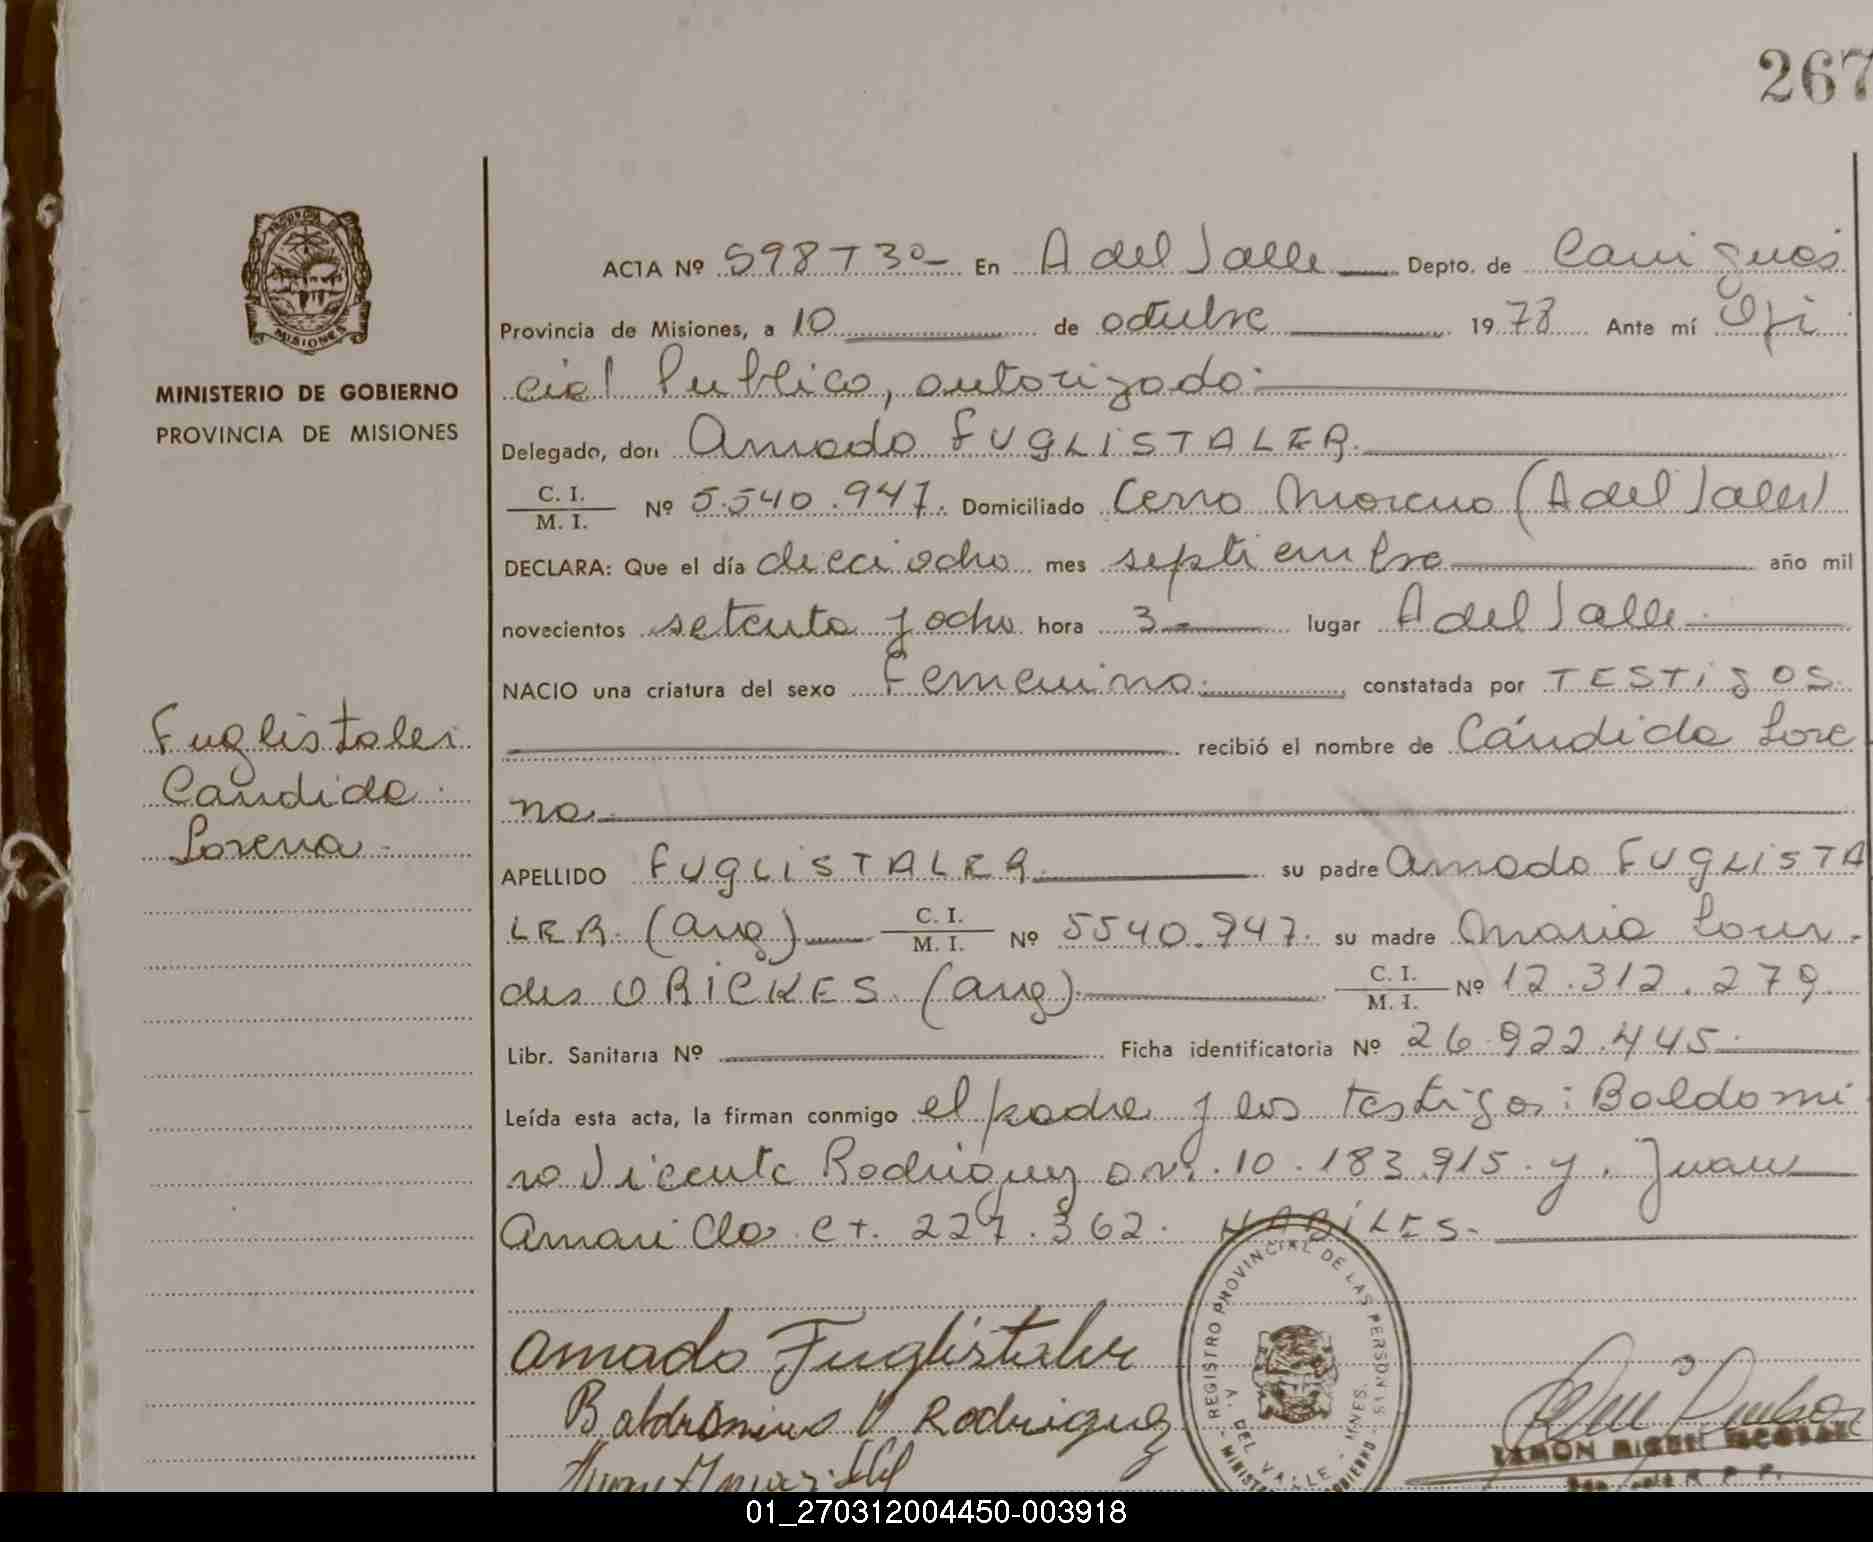 267
PROVINCIA DE
MISIONES
MINISTERIO DE GOBIERNO
PROVINCIA DE MISIONES
Fuglistaler
Candida
Lorena
ACTA Nº 598 T 3º En A del Valle Depto. de Cainguás
Provincia de Misiones, a 10 de octubre 1978 Ante mí Ofi
cial Publico, autorizado:
Delegado, don Amado FUGLISTALER.
C. I.
M. I. Nº 5.540.947. Domiciliado Cerro Moreno (A del Valle)
DECLARA: Que el día dieciocho mes septiembre año mil
novecientos setenta y ocho hora 3 lugar A del Valle
NACIO una criatura del sexo Femenino. constatada por TESTIGOS.
recibió el nombre de Cándida Lore
na.
APELLIDO FUGLISTALER su padre Amado FUGLISTA
LER. (arg) C. I.
M. I. Nº 5540.947. su madre Maria Lour
des ORICKES (arg) C. I.
M. I. Nº 12.312.279.
Libr. Sanitaria Nº Ficha identificatoria Nº 26.922.445.
Leída esta acta, la firman conmigo el padre y los testigos: Baldomi
ro Vicente Rodriguez 10.183.915. y. Juan
Amarilla 227.362. HABILES.
Amado Fuglistaler
Baldomiro V Rodriguez
REGISTRO PROVINCIAL DE LAS PERSONAS
A. DEL VALLE - MNES.
RAMON MIGUEL ESCOBAR
01_270312004450-003918